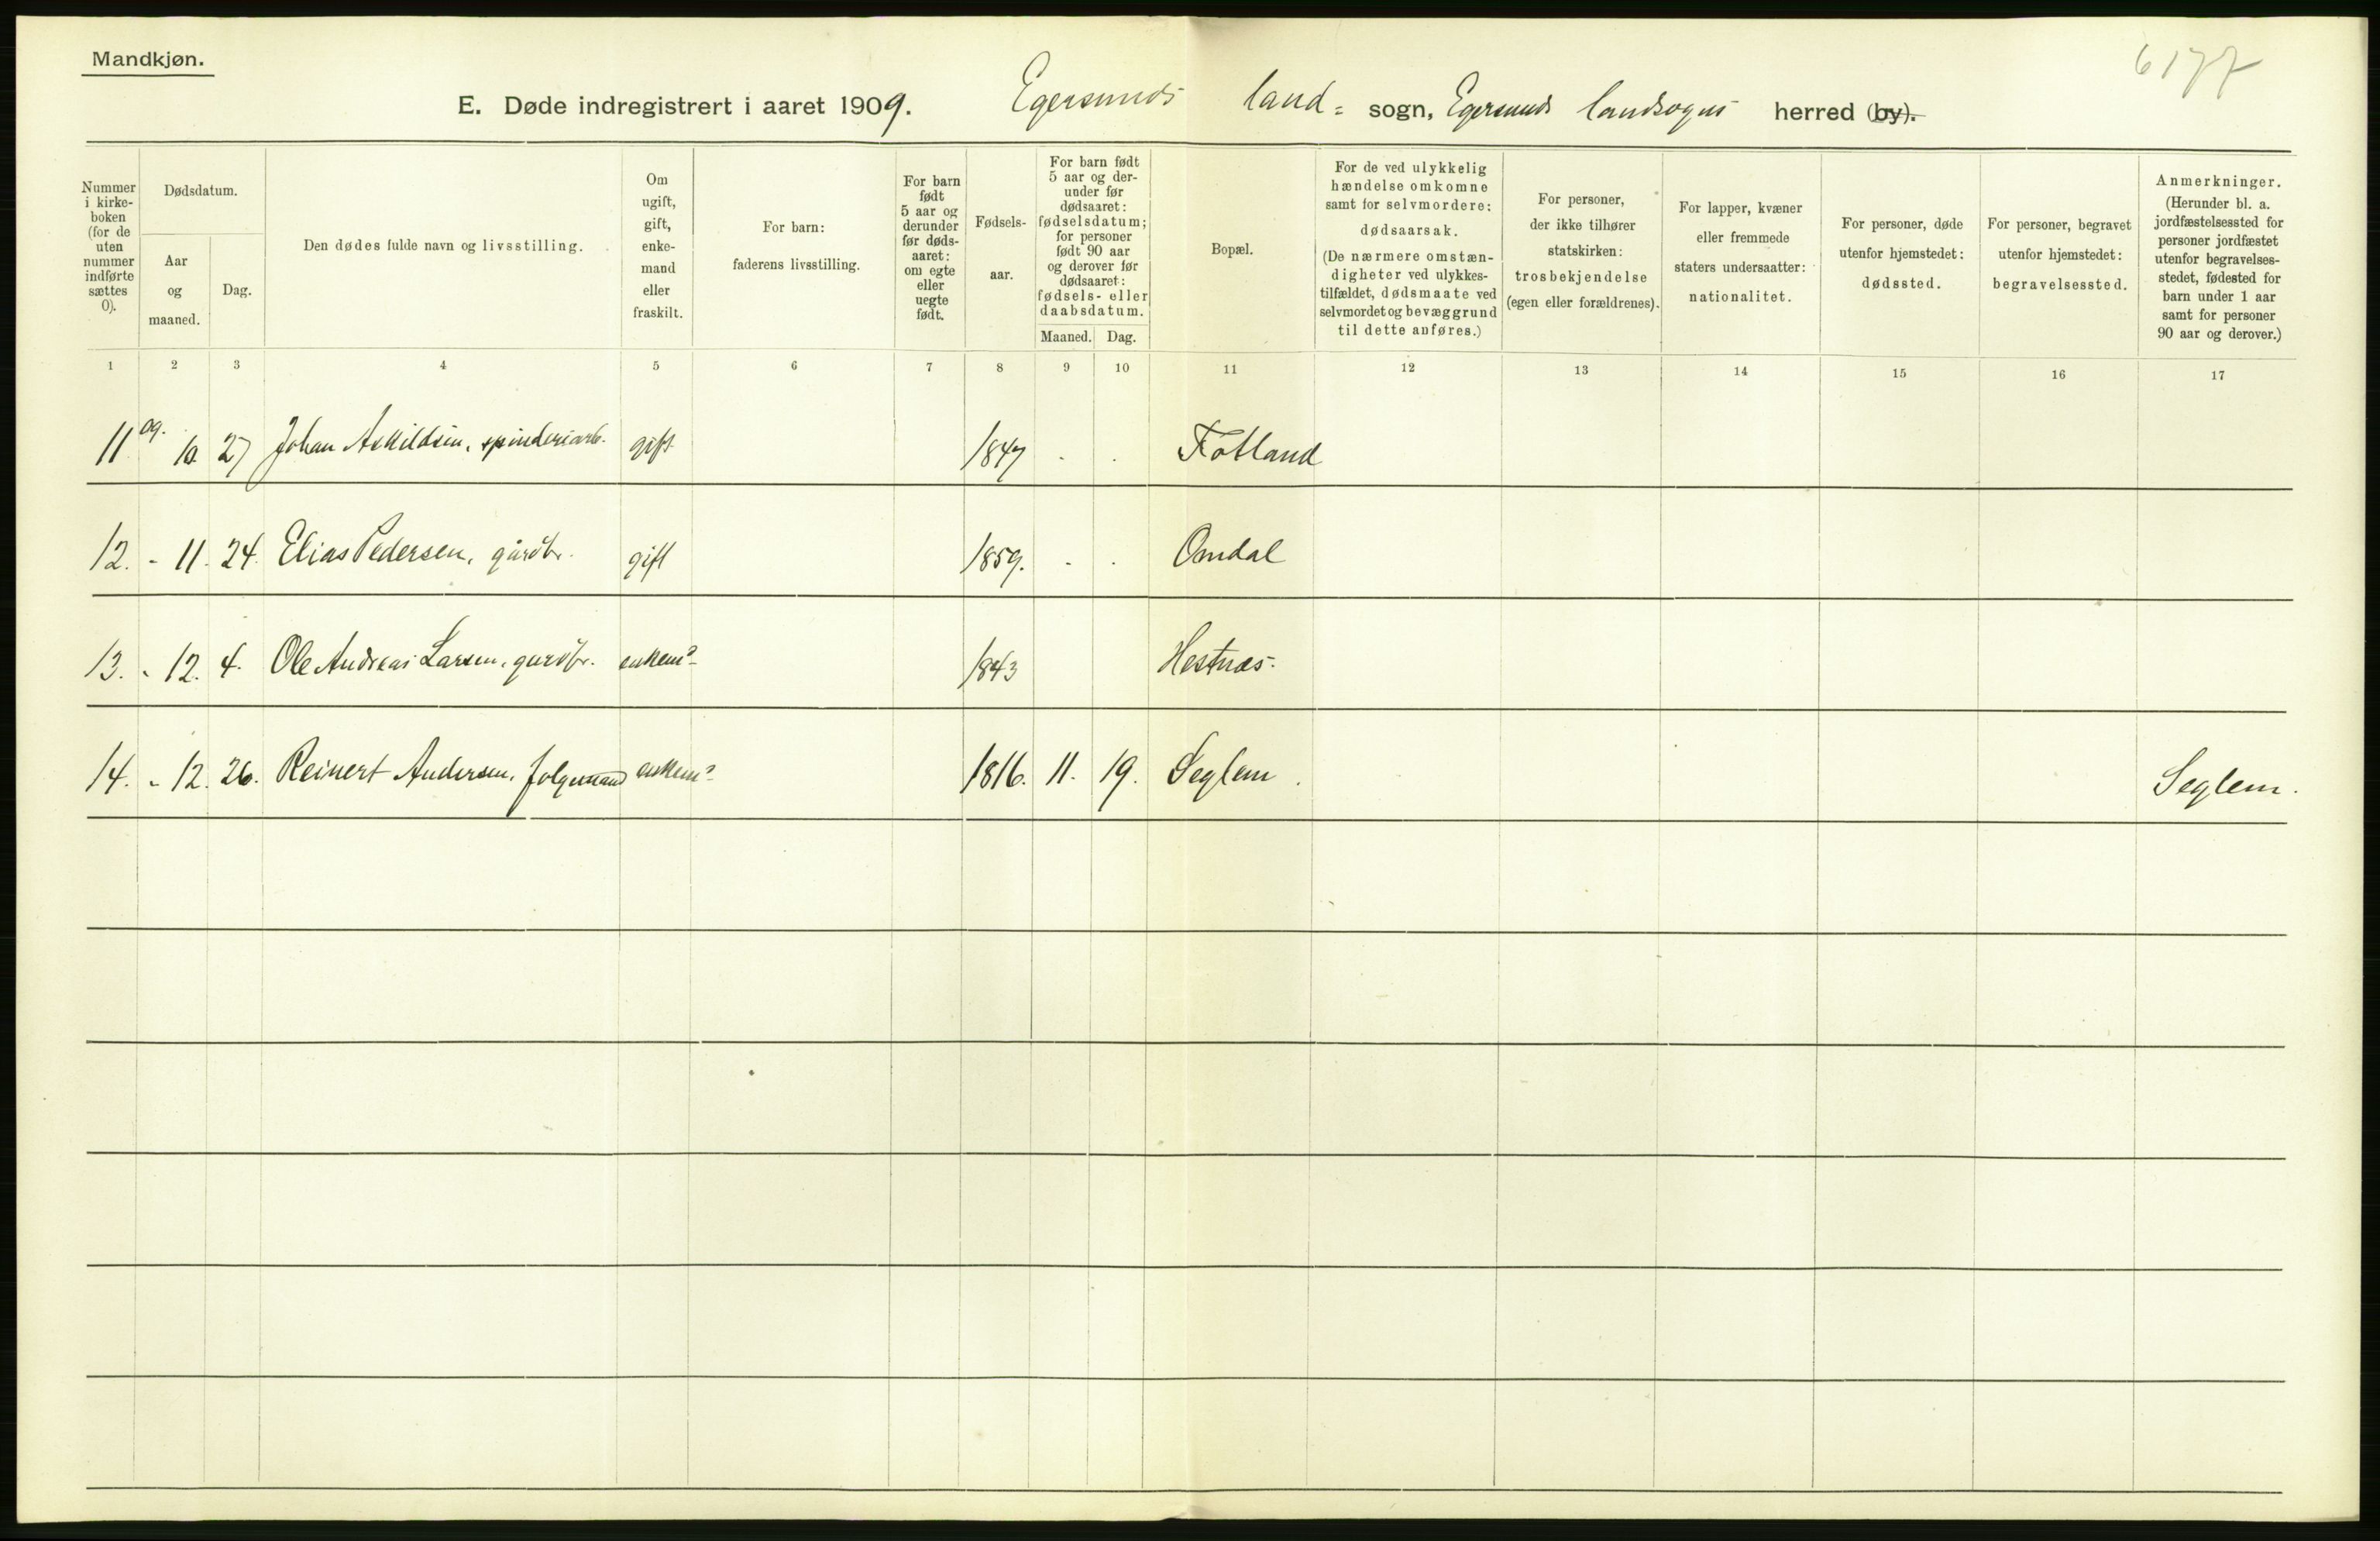 Mandkjøn.
6177
E. Døde indregistrert i aaret 1909. Egersunds land= sogn, Egersunds landsogns herred (by).
Nummer i kirke-boken (for de uten nummer indførte sættes 0).
Dødsdatum.
Aar og maaned.
Dag.
Den dødes fulde navn og livsstilling.
Om ugift, gift, enke-mand eller fraskilt.
For barn: faderens livsstilling.
For barn født 5 aar og derunder før døds-aaret: om egte eller uegte født.
Fødsels-aar.
For barn født 5 aar og der-under før dødsaaret: fødselsdatum; for personer født 90 aar og derover før dødsaaret: fødsels- eller daabsdatum.
Maaned. Dag.
Bopæl.
For de ved ulykkelig hændelse omkomne samt for selvmordere: dødsaarsak. (De nærmere omstæn-digheter ved ulykkes-tilfældet, dødsmaate ved selvmordet og bevæggrund til dette anføres.)
For personer, der ikke tilhører statskirken: trosbekjendelse (egen eller forældrenes).
For lapper, kvæner eller fremmede staters undersaatter: nationalitet.
For personer, døde utenfor hjemstedet: dødssted.
For personer, begravet utenfor hjemstedet: begravelsessted.
Anmerkninger. (Herunder bl. a. jordfæstelsessted for personer jordfæstet utenfor begravelses-stedet, fødested for barn under 1 aar samt for personer 90 aar og derover.)
1 2 3 4 5 6 7 8 9 10 11 12 13 14 15 16 17
11 09. 10. 27 Johan Askildsen, spinderiarb. gift 1847 - . Fotland
12. - 11. 24. Elias Pedersen, gårdbr. gift 1859. - . Omdal
13. - 12. 4. Ole Andreas Larsen, gårdbr. enkemd 1843 Hestnes.
14. - 12. 26. Reinert Andersen, folgemand enkemd 1816. 11. 19. Seglem. Seglem.